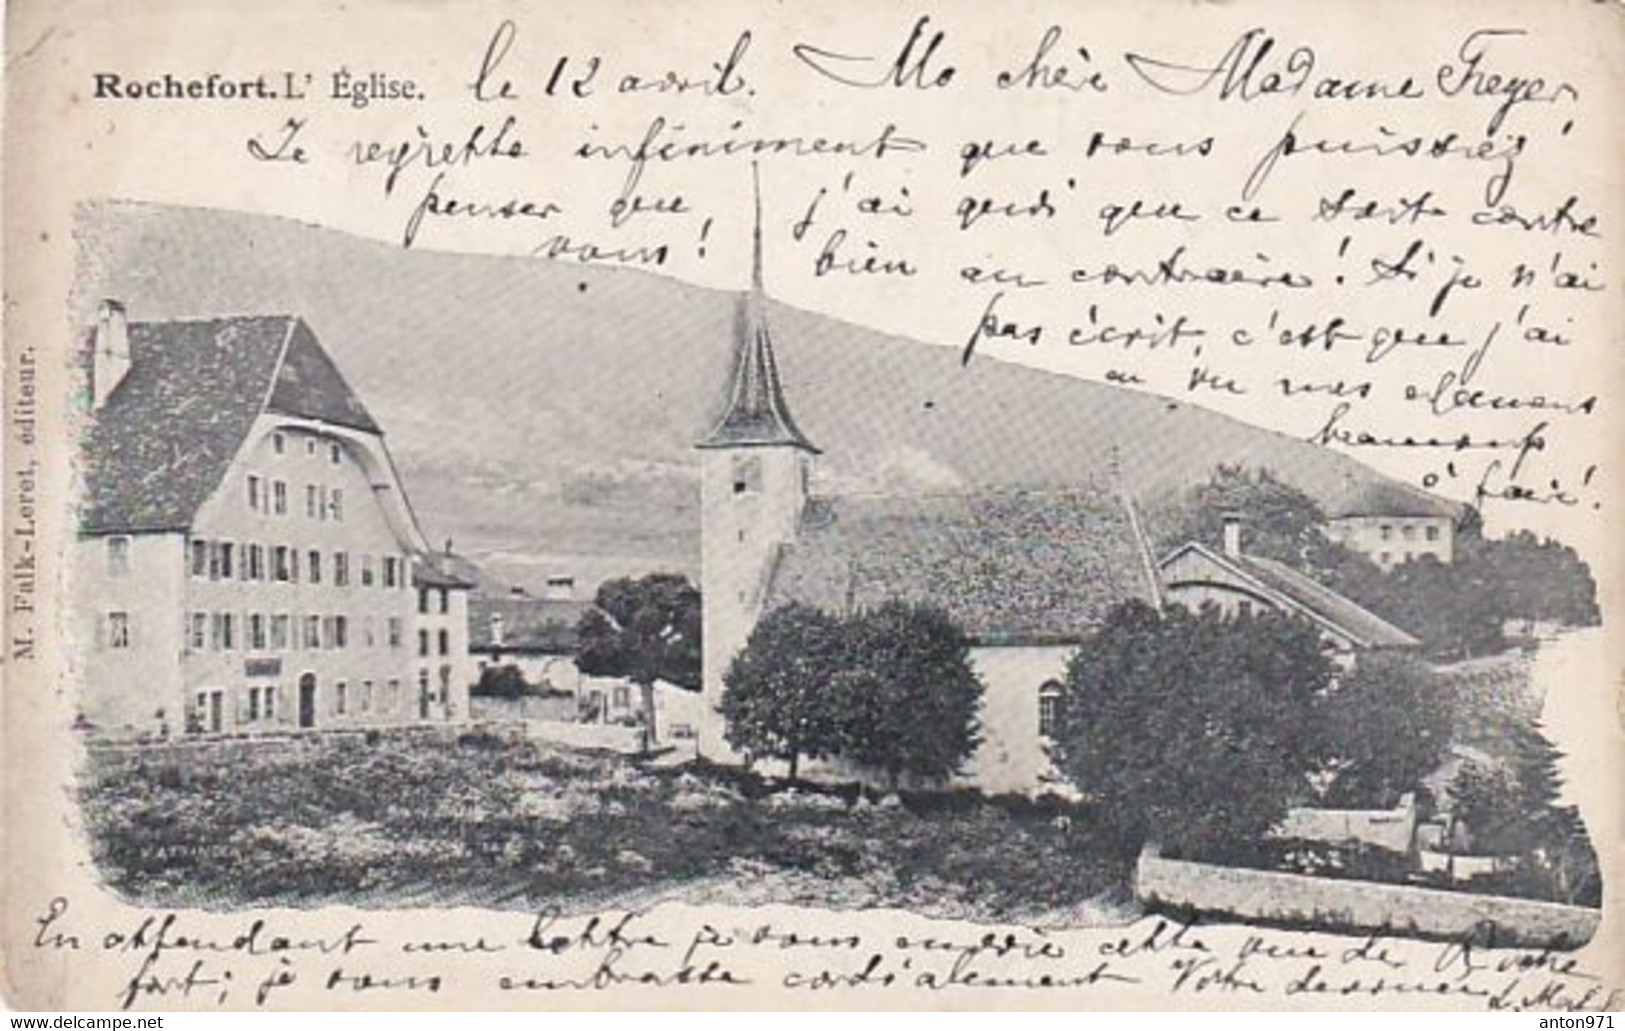 Rochefort. L' Église. le 12 avril. Ma chère Madame Freyer,
Je regrette infiniment que vous puissiez
penser que, j'ai quoi que ce soit contre
vous! bien au contraire! Si je n'ai
pas écrit, c'est que j'ai
eu
beaucoup
à faire!
M. Falk-Leret, éditeur.
En attendant une lettre je vous envoie cette vue de Roche
fort; je vous embrasse cordialement Votre
www.delcampe.net
anton971